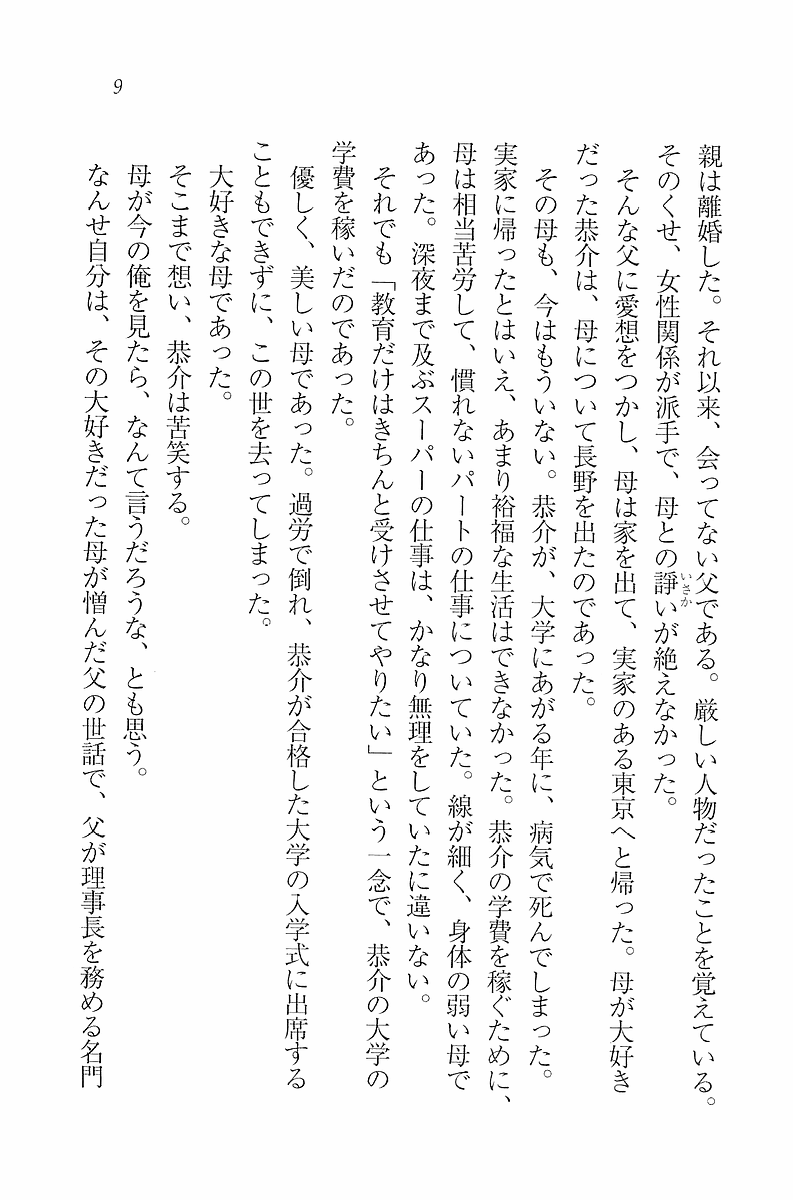 9
親は離婚した。それ以来、会ってない父である。厳しい人物だったことを覚えている。
そのくせ、女性関係が派手で、母との諍いが絶えなかった。
いさか
そんな父に愛想をつかし、母は家を出て、実家のある東京へと帰った。母が大好き
だった恭介は、母について長野を出たのであった。
その母も、今はもういない。恭介が、大学にあがる年に、病気で死んでしまった。
実家に帰ったとはいえ、あまり裕福な生活はできなかった。恭介の学費を稼ぐために、
母は相当苦労して、慣れないパートの仕事についていた。線が細く、身体の弱い母で
あった。深夜まで及ぶスーパーの仕事は、かなり無理をしていたに違いない。
それでも「教育だけはきちんと受けさせてやりたい」という一念で、恭介の大学の
学費を稼いだのであった。
優しく、美しい母であった。過労で倒れ、恭介が合格した大学の入学式に出席する
こともできずに、この世を去ってしまった。
大好きな母であった。
そこまで想い、恭介は苦笑する。
母が今の俺を見たら、なんて言うだろうな、とも思う。
なんせ自分は、その大好きだった母が憎んだ父の世話で、父が理事長を務める名門